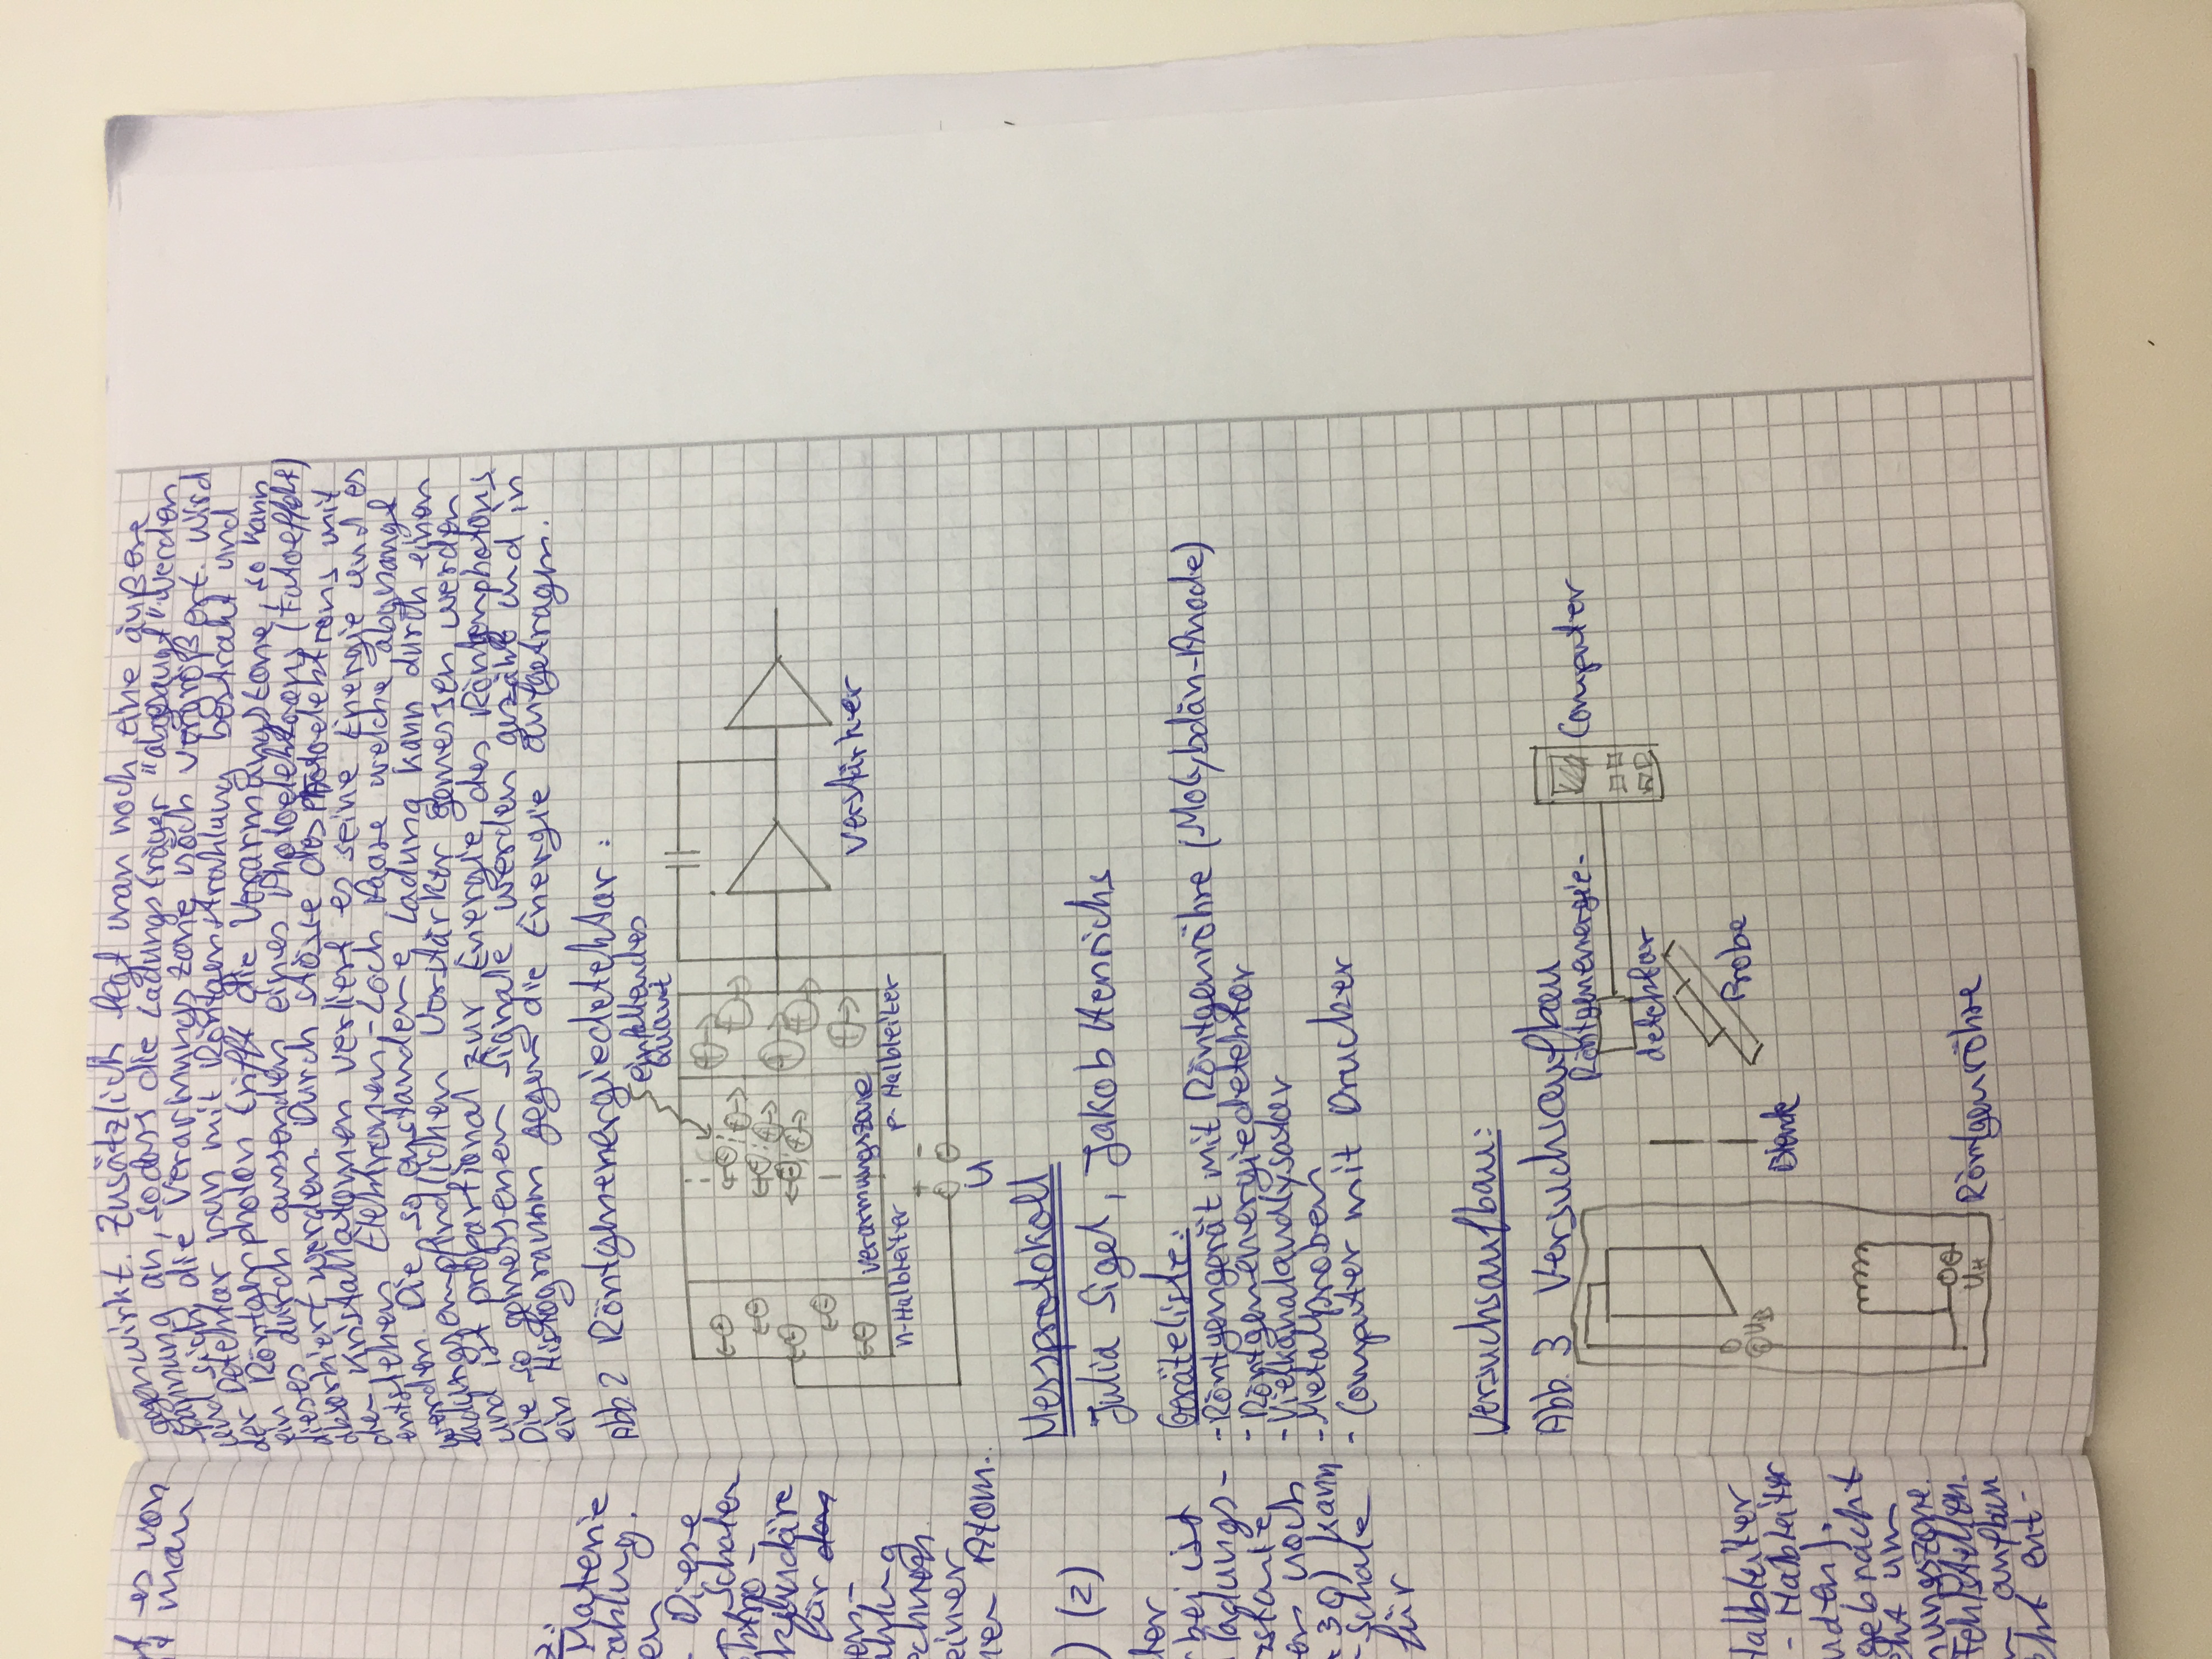 t es von
t man
z.
Materie
rahlung.
en
- Diese
Schalen
ktro-
kundäre
für das
ens-
ahlung
echnen
einer
nen Atom.
) (2)
tor
bei ist
ladungs-
nstante
en noch
< 30) kann
-Schale
für
Halbleiter
- Halbleiter
nden).
gebracht
eht um
mungszone.
Fehlstellen.
aufbau
cht ent-
gegenwirkt. Zusätzlich legt man noch eine äußere
Spannung an, sodass die Ladungsträger "abgesaugt" werden
und sich die Verarmungszone noch vergrößert. Wird
der Detektor nun mit Röntgenstrahlung bestrahlt und
ein Röntgenphoton trifft die Verarmungszone, so kann
dieses durch aussenden eines Photoelektrons (Fotoeffekt)
absorbiert werden. Durch stösse des Photoelektrons mit
den Kristallatomen verliert es seine Energie und es
entstehen Elektronen-Loch Paare welche abgesaugt
werden. Die so enstandene Ladung kann durch einen
ladungsempfindlichen Verstärker gemessen werden
und ist proportional zur Energie des Röntgenphotons
Die so gemessenen Signale werden gezählt und in
ein Histogramm gegen die Energie aufgetragen.
Abb 2 Röntgenenergiedetektor:
einfallendes
Quant
Verarmungszone
n-Halbleiter p-Halbleiter
Verstärker
+ -
U
Messprotokoll
Julia Sigel, Jakob Henrichs
Geräteliste:
- Röntgengerät mit Röntgenröhre (Molybdän-Anode)
- Röntgenenergiedetektor
- Vielkanalanalysator
- Metalproben
- Computer mit Drucker
Versuchsaufbau:
Abb. 3 Versuchsaufbau
Röntgenenergie-
detektor
Computer
Probe
Blende
UB
UH
Röntgenröhre